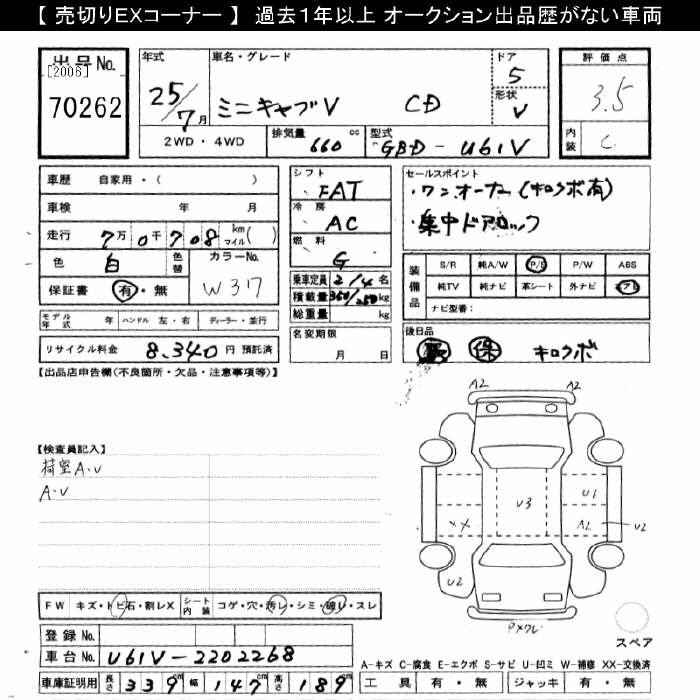 【 売切りEXコーナー 】 過去1年以上 オークション出品歴がない車両
出品No.
[2006]
70262
年式
25/7月
車名・グレード
ミニキャブV CD
ドア
5
形状
V
評価点
3.5
内装
C
2WD・4WD
排気量
660 cc
型式
GBD-U61V
車歴 自家用・( )
車検 年 月
走行 7万0千708 km マイル( )
色 白 色替
カラーNo.
W37
保証書 有・無
モデル年式 年 ハンドル 左・右 ディーラー・並行
リサイクル料金 8,340円 預託済
シフト
FAT
冷房
AC
燃料
G
乗車定員 2/4名
積載量 350/250kg
総重量 kg
名変期限
月 日
セールスポイント
・ワンオーナー(キロクボ有)
・集中ドアロック
装備品
S/R 純A/W P/S P/W ABS
純TV 純ナビ 革シート 外ナビ エアB
ナビ型番：
後日品
保 キロクボ
【出品店申告欄(不良箇所・欠品・注意事項等)】
【検査員記入】
荷室A.U
A.U
A2 A2
U3
U1
XX
A2
U2
U2
PXワレ
スペア
FW キズ・トビ石・割レX
シート内装 コゲ・穴・汚レ・シミ・破レ・スレ
登録No.
車台No. U61V-2202268
車庫証明用 長さ 339cm 幅 147cm 高さ 189cm
A-キズ C-腐食 E-エクボ S-サビ U-凹ミ W-補修 XX-交換済
工具 有・無 ジャッキ 有・無